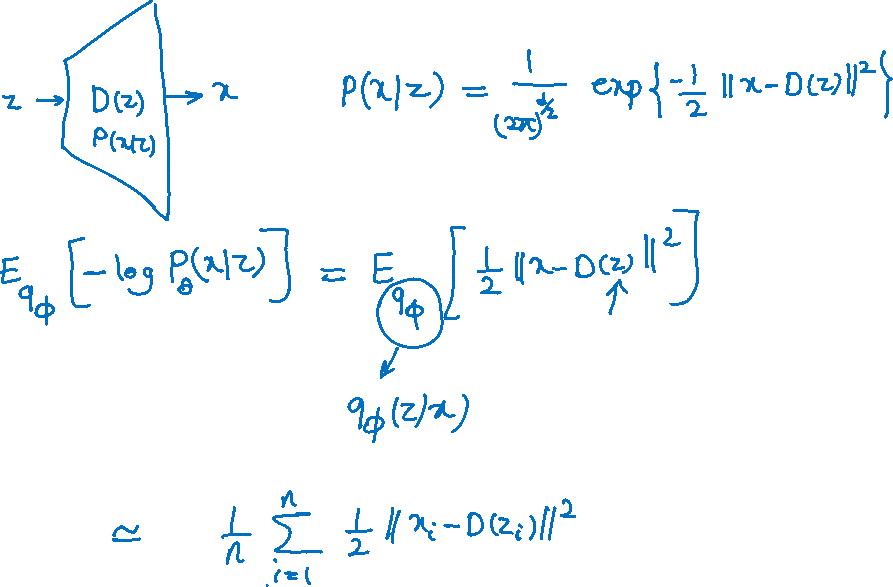 z → D(z) → x
P(x|z)
P(x|z) = 1/(2π)^{d/2} exp{-1/2 ||x-D(z)||^2}
E_{q_ϕ} [-log P_θ(x|z)] = E_{q_ϕ} [1/2 ||x-D(z)||^2]
q_ϕ(z/x)
≃ 1/n ∑_{i=1}^{n} 1/2 ||x_i-D(z_i)||^2